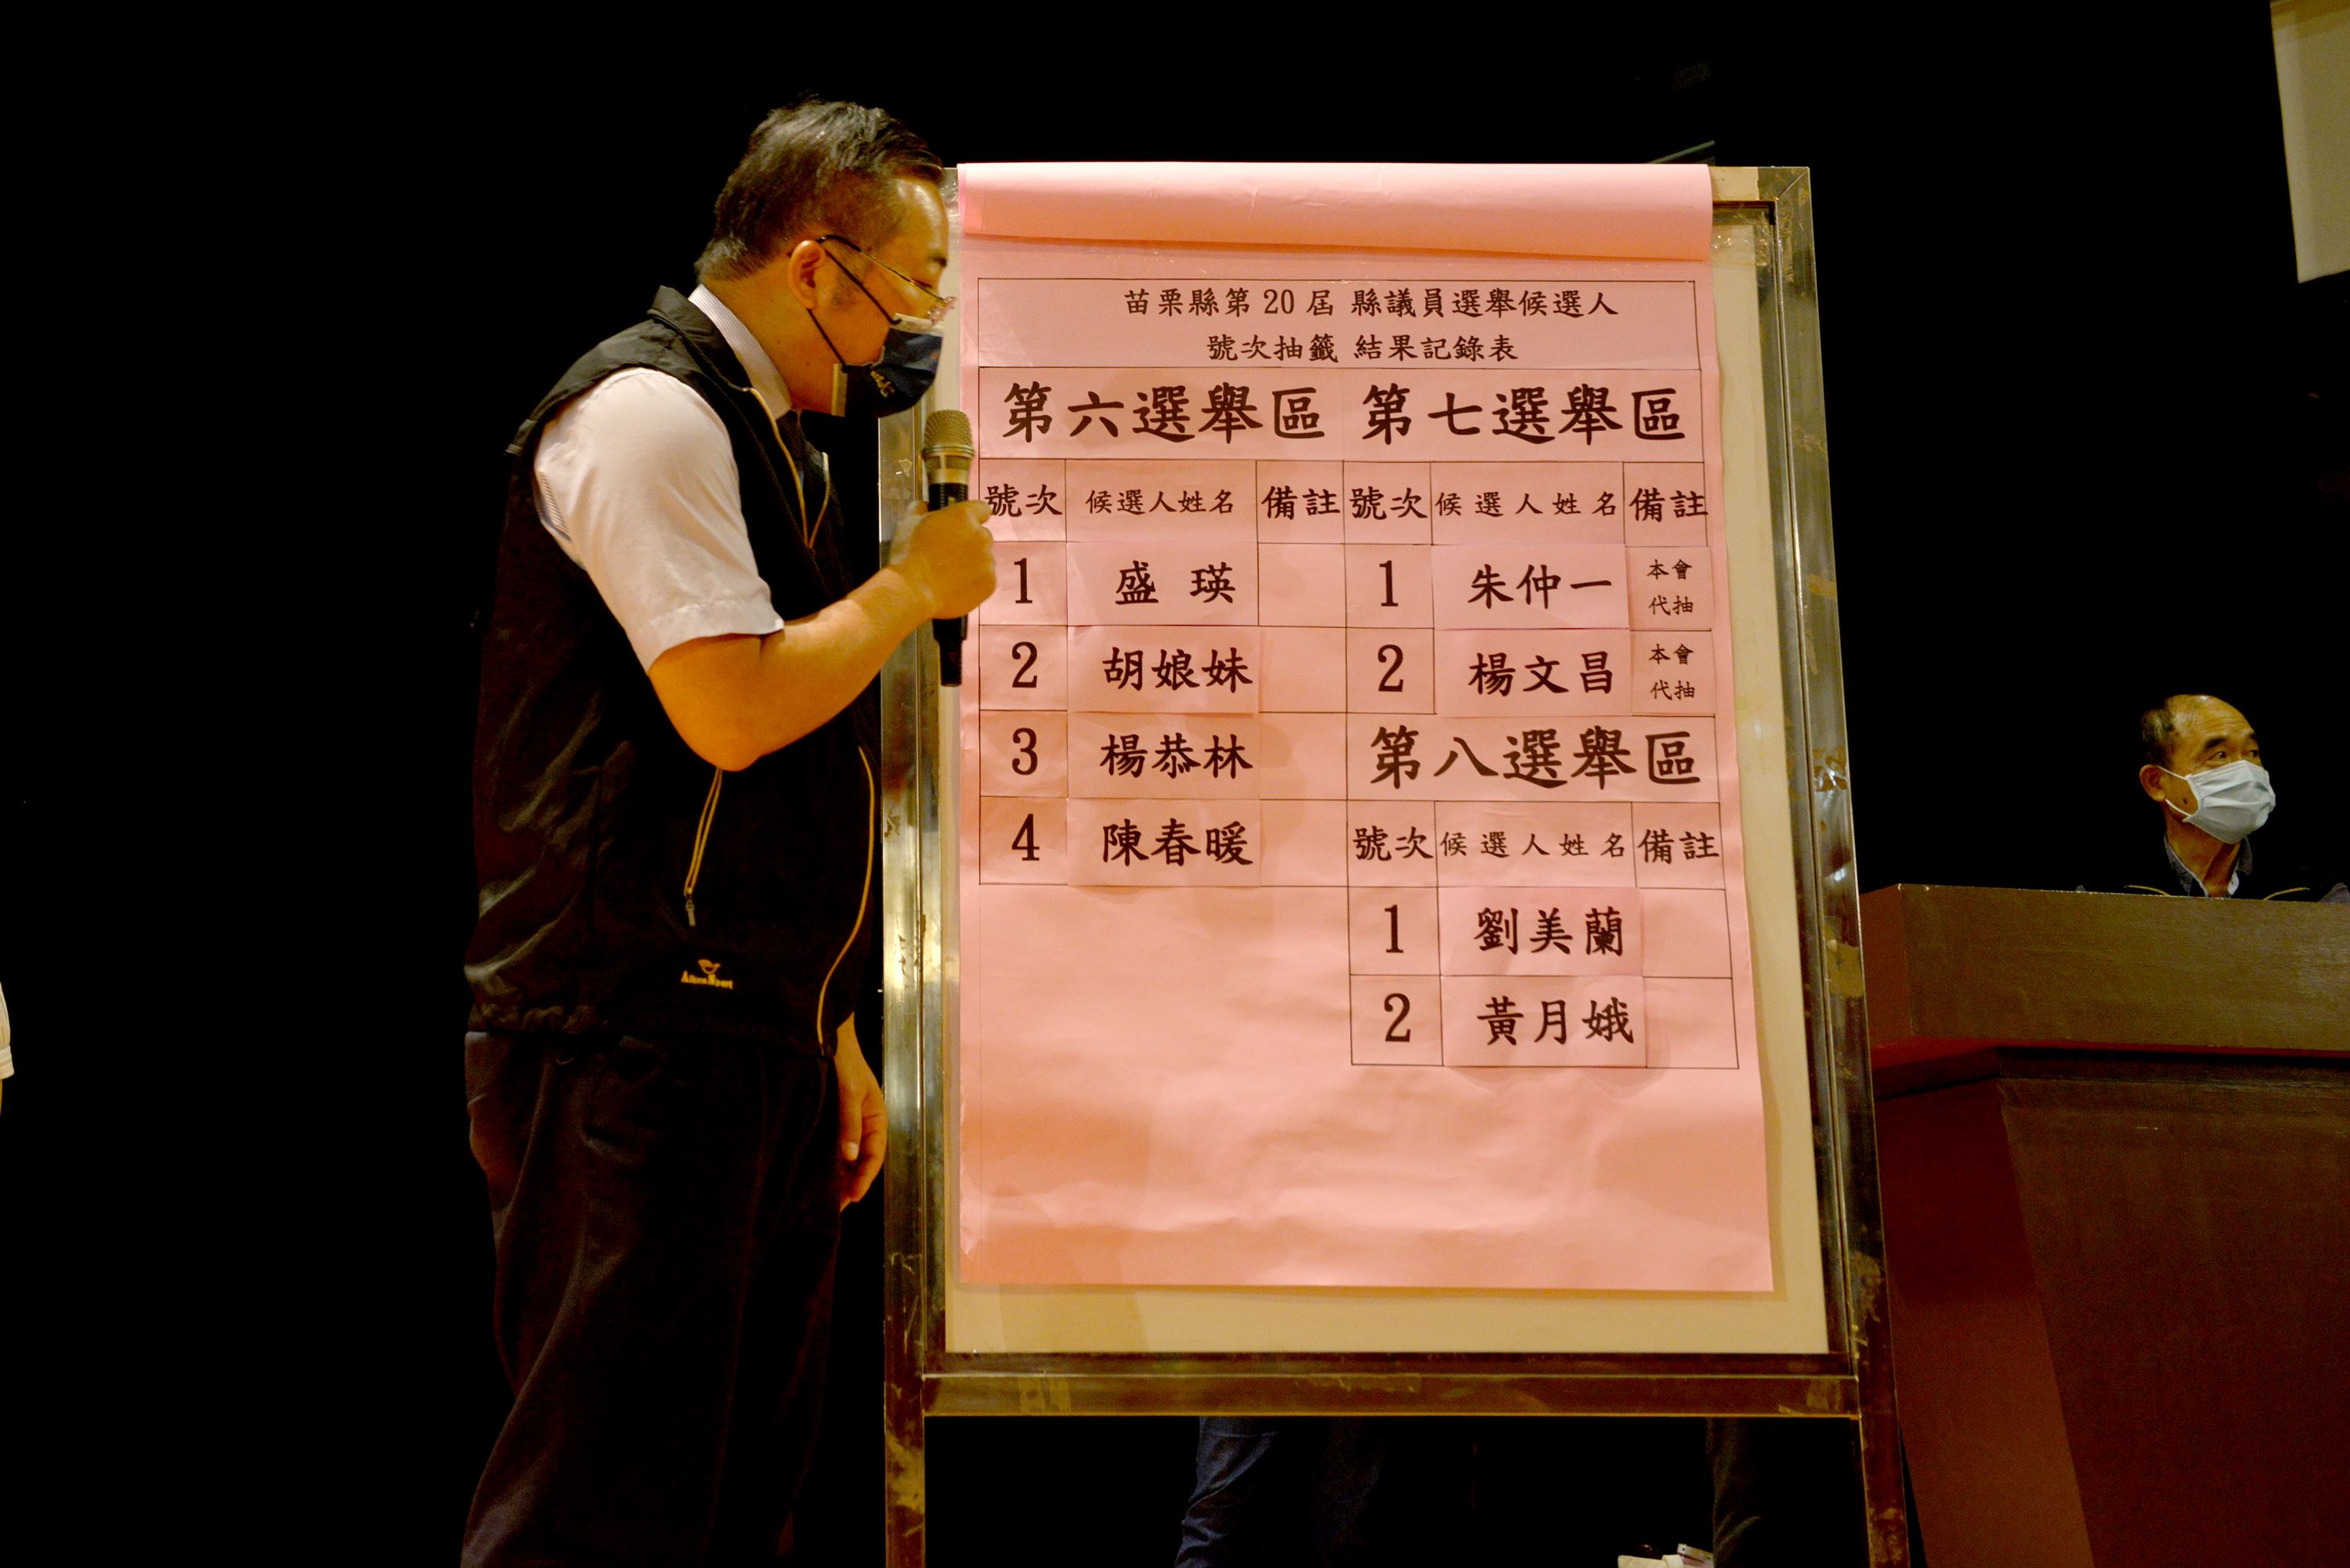 苗栗縣第20屆 縣議員選舉候選人
號次抽籤 結果記錄表
第六選舉區
號次 候選人姓名 備註
1 盛 瑛
2 胡娘妹
3 楊恭林
4 陳春暖
第七選舉區
號次 候選人姓名 備註
1 朱仲一 本會
代抽
2 楊文昌 本會
代抽
第八選舉區
號次 候選人姓名 備註
1 劉美蘭
2 黃月娥